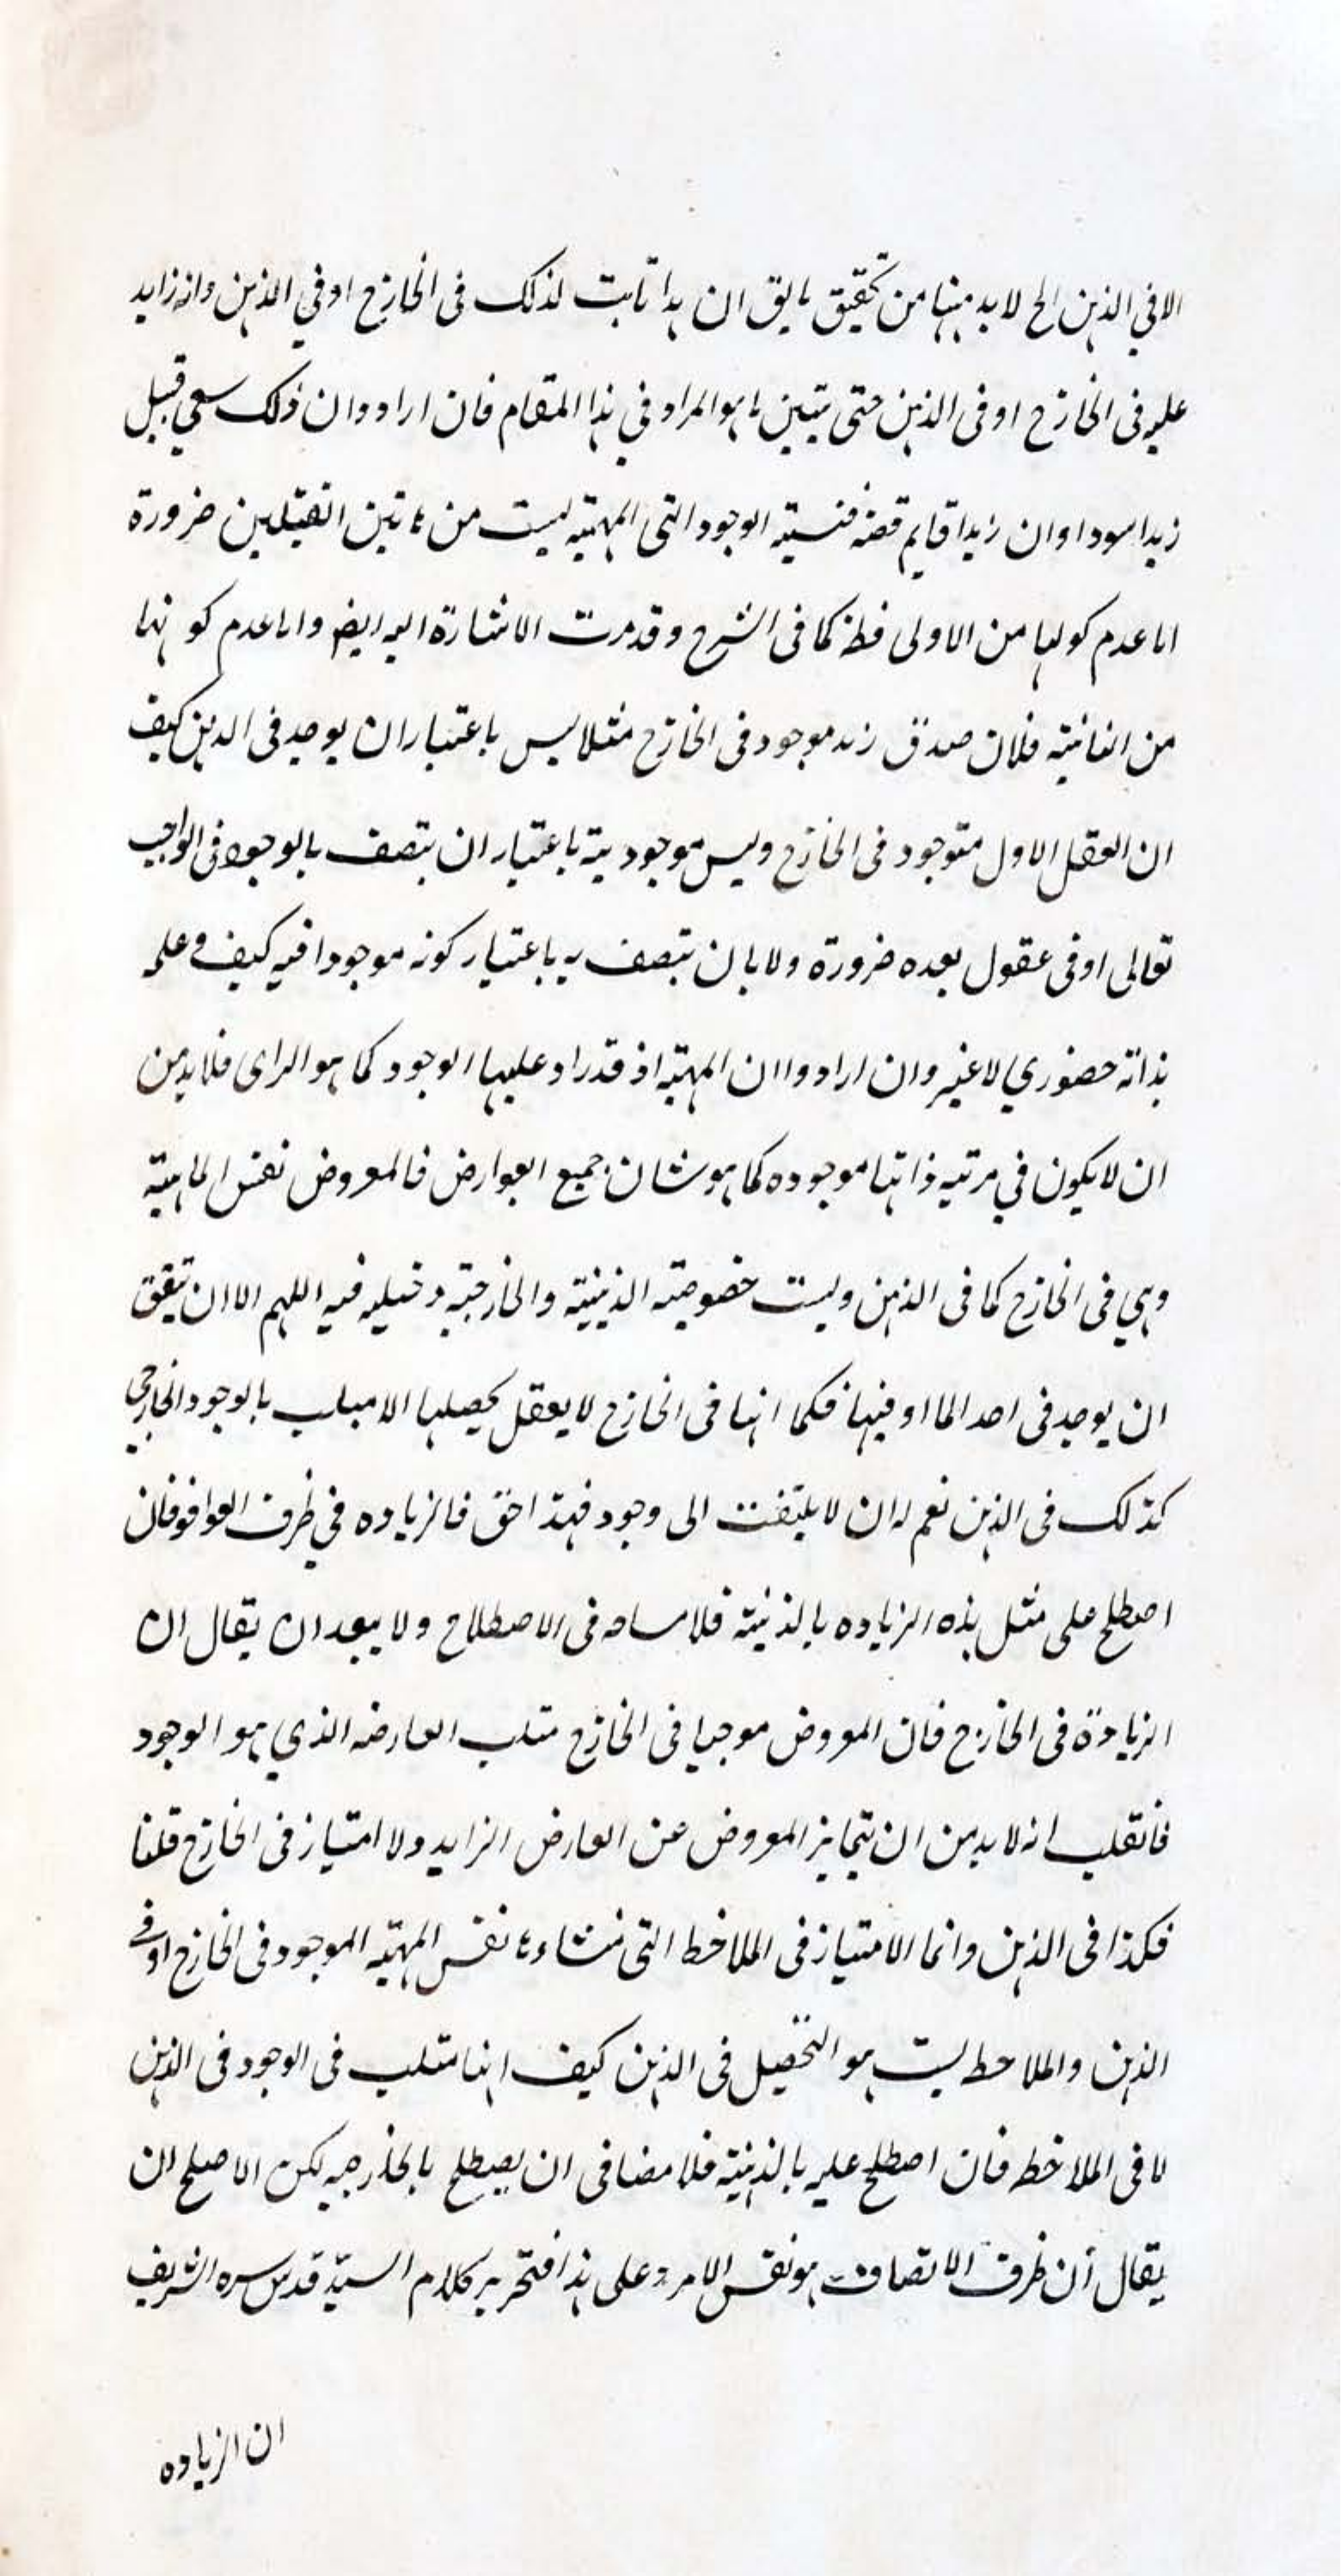 الا في الذهن الخ لا بد ههنا من تحقيق ما يق ان هذا ثابت لذلك في الخارج او في الذهن وانه زايد
عليه في الخارج او في الذهن حتى يتبين ما هو المراد في هذا المقام فان ارادوا ان ذلك سعى قبيل
زيد اسود او ان زيدا قايم قضة فنسبته الوجود التي المهية ليست من هاتين القبيلين ضرورة
اما عدم كولها من الاولى فظ كما في الشرح وقد مرت الاشارة اليه ايض واما عدم كونها
من الثانية فلان صدق زيد موجود في الخارج مثلا ليس باعتبار ان يوجد في الذهن كيف
ان العقل الاول متوجود في الخارج وليس موجوديته باعتبار ان يتصف بالوجود في الواجب
تعالى او في عقول بعده ضرورة ولا بان يتصف به باعتبار كونه موجودا فيه كيف وعلمه
بذاته حضوري لا غير وان ارادوا ان المهية اذ قد زاد عليها الوجود كما هو الراى فلا بد من
ان لا يكون في مرتبه ذاتها موجوده كما هو شان جميع العوارض فالمعروض نفس الماهية
وهي في الخارج كما في الذهن وليست خصوصية الذهنية والخارجية دخيله فيه اللهم الا ان يتقق
ان يوجد في احد الما او فيهما فكما انها في الخارج لا يعقل تحصلها الا مبلب بالوجود الخارجي
كذلك في الذهن نعم له ان لا يلتفت الى وجود فهذا حق فالزياده في ظرف العوا فو فان
اصطلح على مثل هذه الزياده بالذهنية فلا مساحه في الاصطلاح ولا يبعد ان يقال ان
الزيادة في الخارج فان المعروض موجيا في الخارج متلب العارضه الذي هو الوجود
فانقلب انه لا بد من ان يتمايز المعروض عن العارض الزايد ولا امتياز في الخارج قلنا
فكذا في الذهن وانما الامتياز في الملاحظ التي منشاءها نفس المهية الموجود في الخارج او في
الذهن والملاحظ ليست هو التحصيل في الذهن كيف انها متلب في الوجود في الذهن
لا في الملاحظ فان اصطلح عليه بالذهنية فلا مضافى ان يصطلح بالخارجيه لكن الاصلح ان
يقال ان ظرف الاتصاف هو نفس الامر وعلى هذا فتحرير كلام السيد قدس سره الشريف
ان الزياده